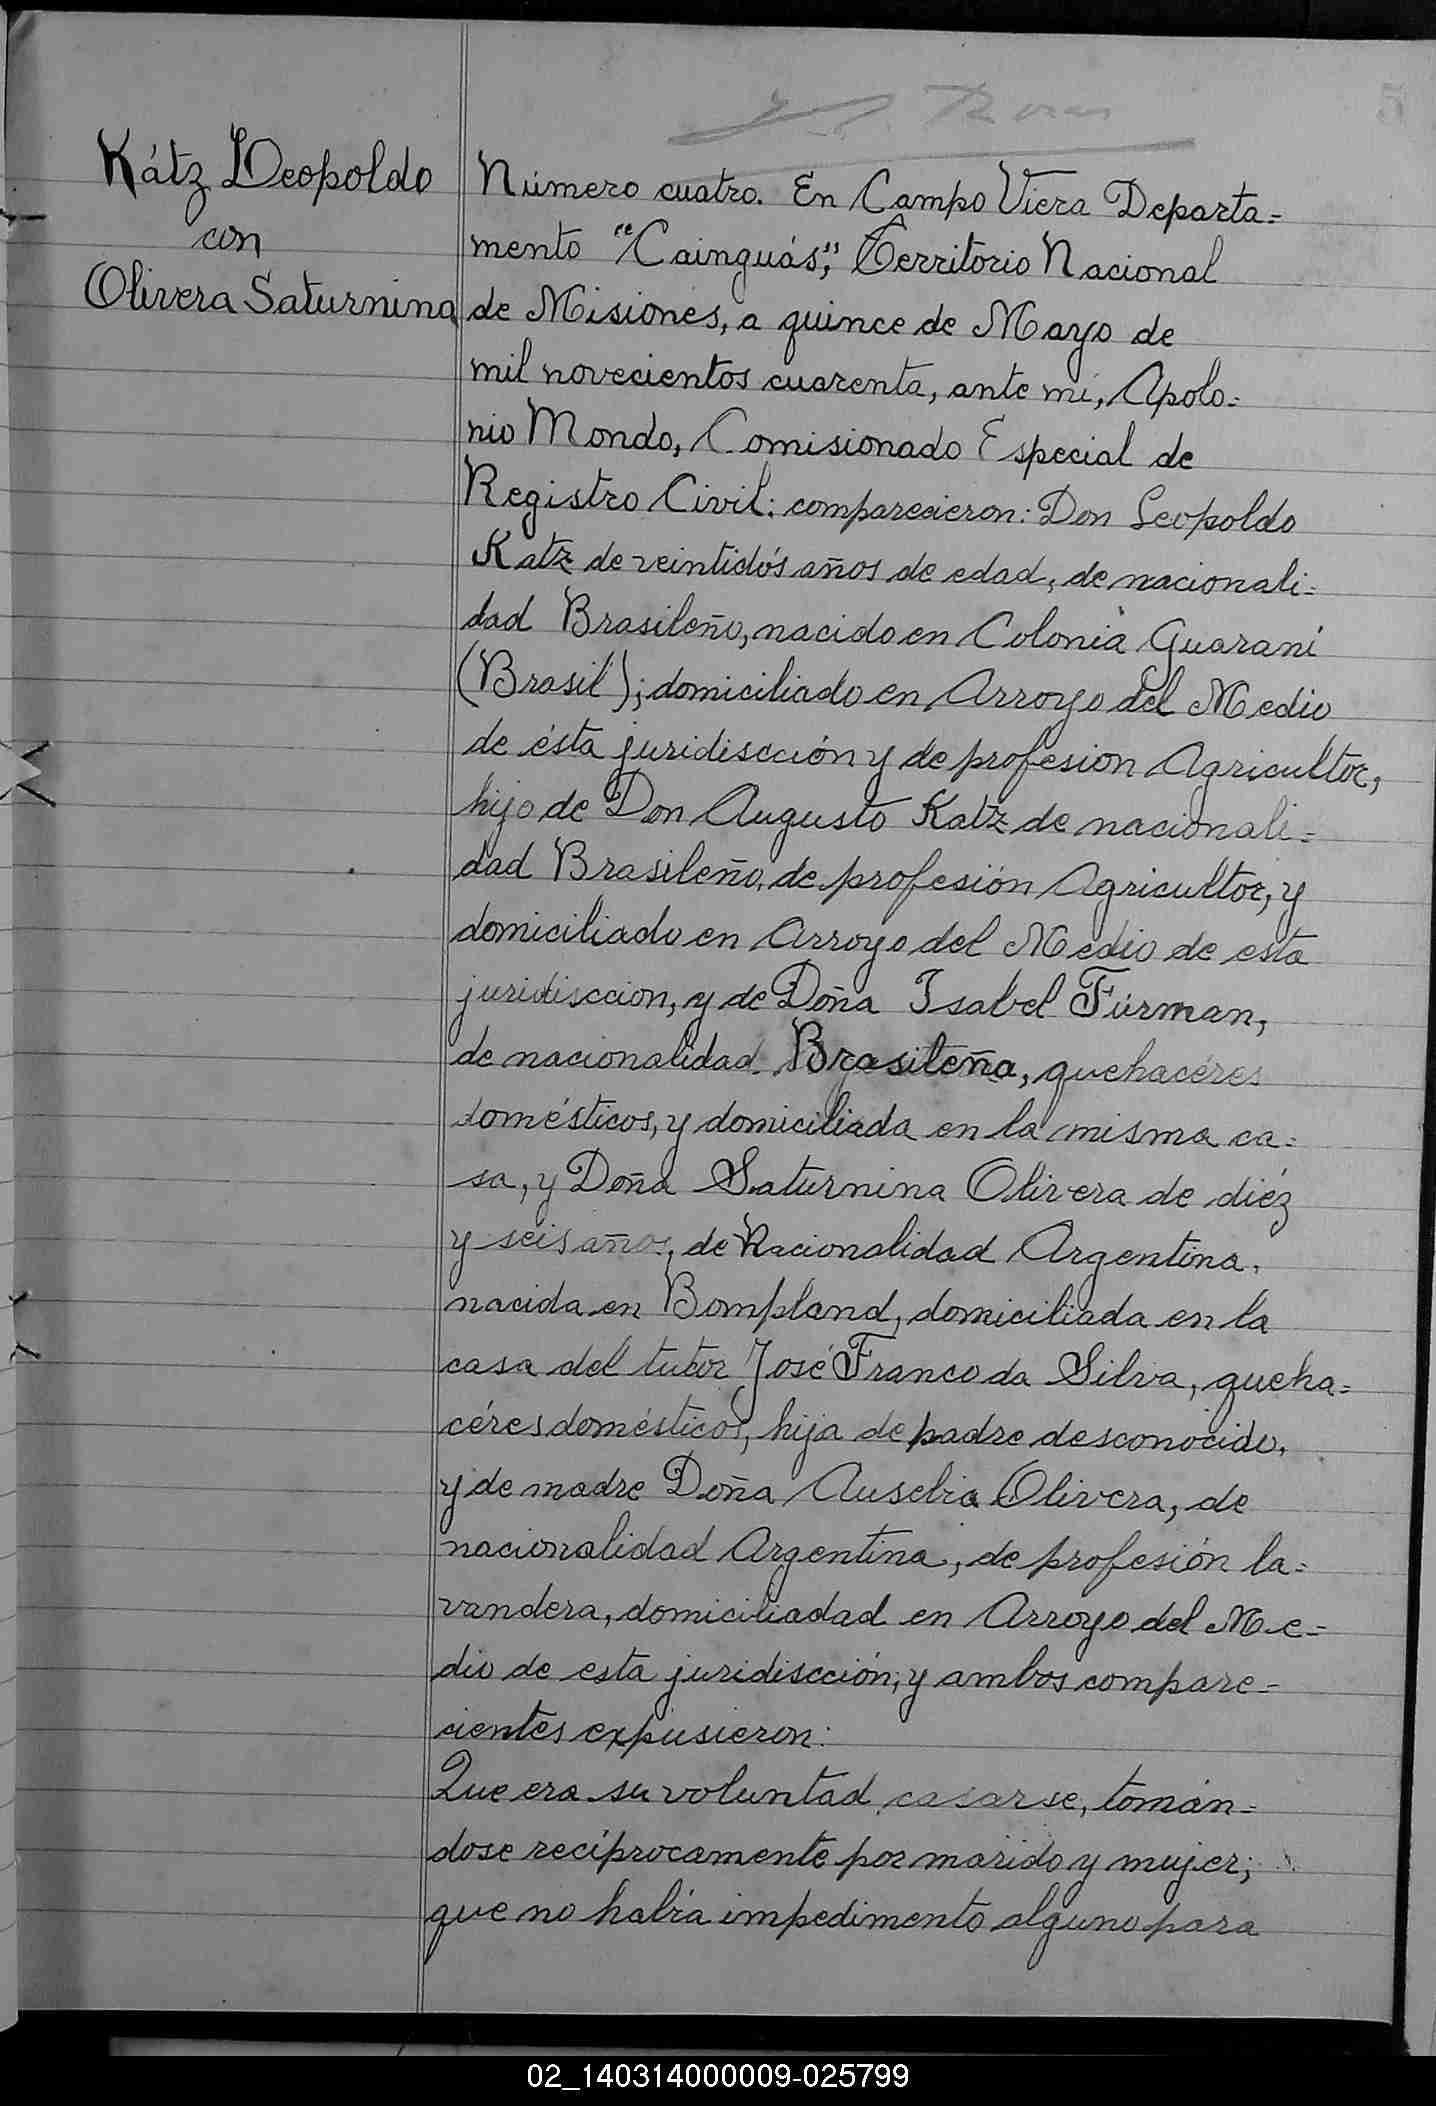 5
Kátz Leopoldo
con
Olivera Saturnina
Número cuatro. En Campo Viera Departa=
mento "Cainguás", Territorio Nacional
de Misiones, a quince de Mayo de
mil novecientos cuarenta, ante mí, Apolo=
nio Mondo, Comisionado Especial de
Registro Civil: comparecieron: Don Leopoldo
Katz de veintidós años de edad, de nacionali=
dad Brasileño, nacido en Colonia Guaraní
(Brasil); domiciliado en Arroyo del Medio
de ésta juridiscción y de profesion Agricultor,
hijo de Don Augusto Katz de nacionali=
dad Brasileño, de profesión Agricultor, y
domiciliado en Arroyo del Medio de esta
juridisccion, y de Doña Isabel Fúrman,
de nacionalidad Brasileña, quehacéres
domésticos, y domiciliada en la misma ca=
sa, y Doña Saturnina Olivera de diéz
y seis años, de Nacionalidad Argentina,
nacida en Bompland, domiciliada en la
casa del tutor José Franco da Silva, queha=
céres domésticos, hija de padre desconocido,
y de madre Doña Auselia Olivera, de
nacionalidad Argentina, de profesión la=
vandera, domiciliadad en Arroyo del Me=
dio de esta juridiscción; y ambos compare=
cientes expusieron:
Que era su voluntad casarse, tomán=
dose recíprocamente por marido y mujer;
que no había impedimento alguno para
02_140314000009-025799